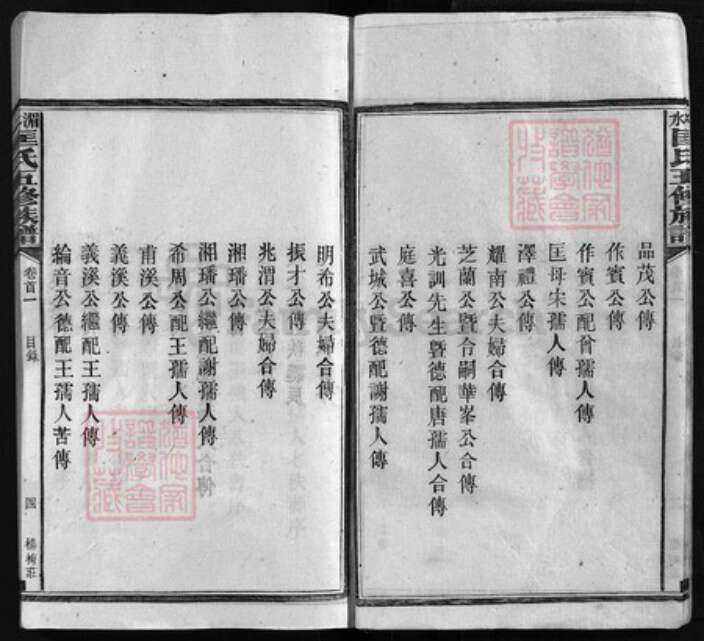 水匡氏五修族譜
品茂公傳
作賓公傳
作賓公配曾孺人傳
匡母宋孺人傳
澤禮公傳
耀南公夫婦合傳
芝蘭公暨令嗣華峯公合傳
光訓先生暨德配唐孺人合傳
庭喜公傳
武城公暨德配謝孺人傳
明希公夫婦合傳
振才公傳
兆渭公夫婦合傳
湘璠公傳
湘璠公繼配謝孺人傳
希周公配王孺人傳
甫溪公傳
義溪公傳
義溪公繼配王孺人傳
綸音公德配王孺人苦傳
湄匡氏五修族譜
卷首一
目錄
四
楊梅莊